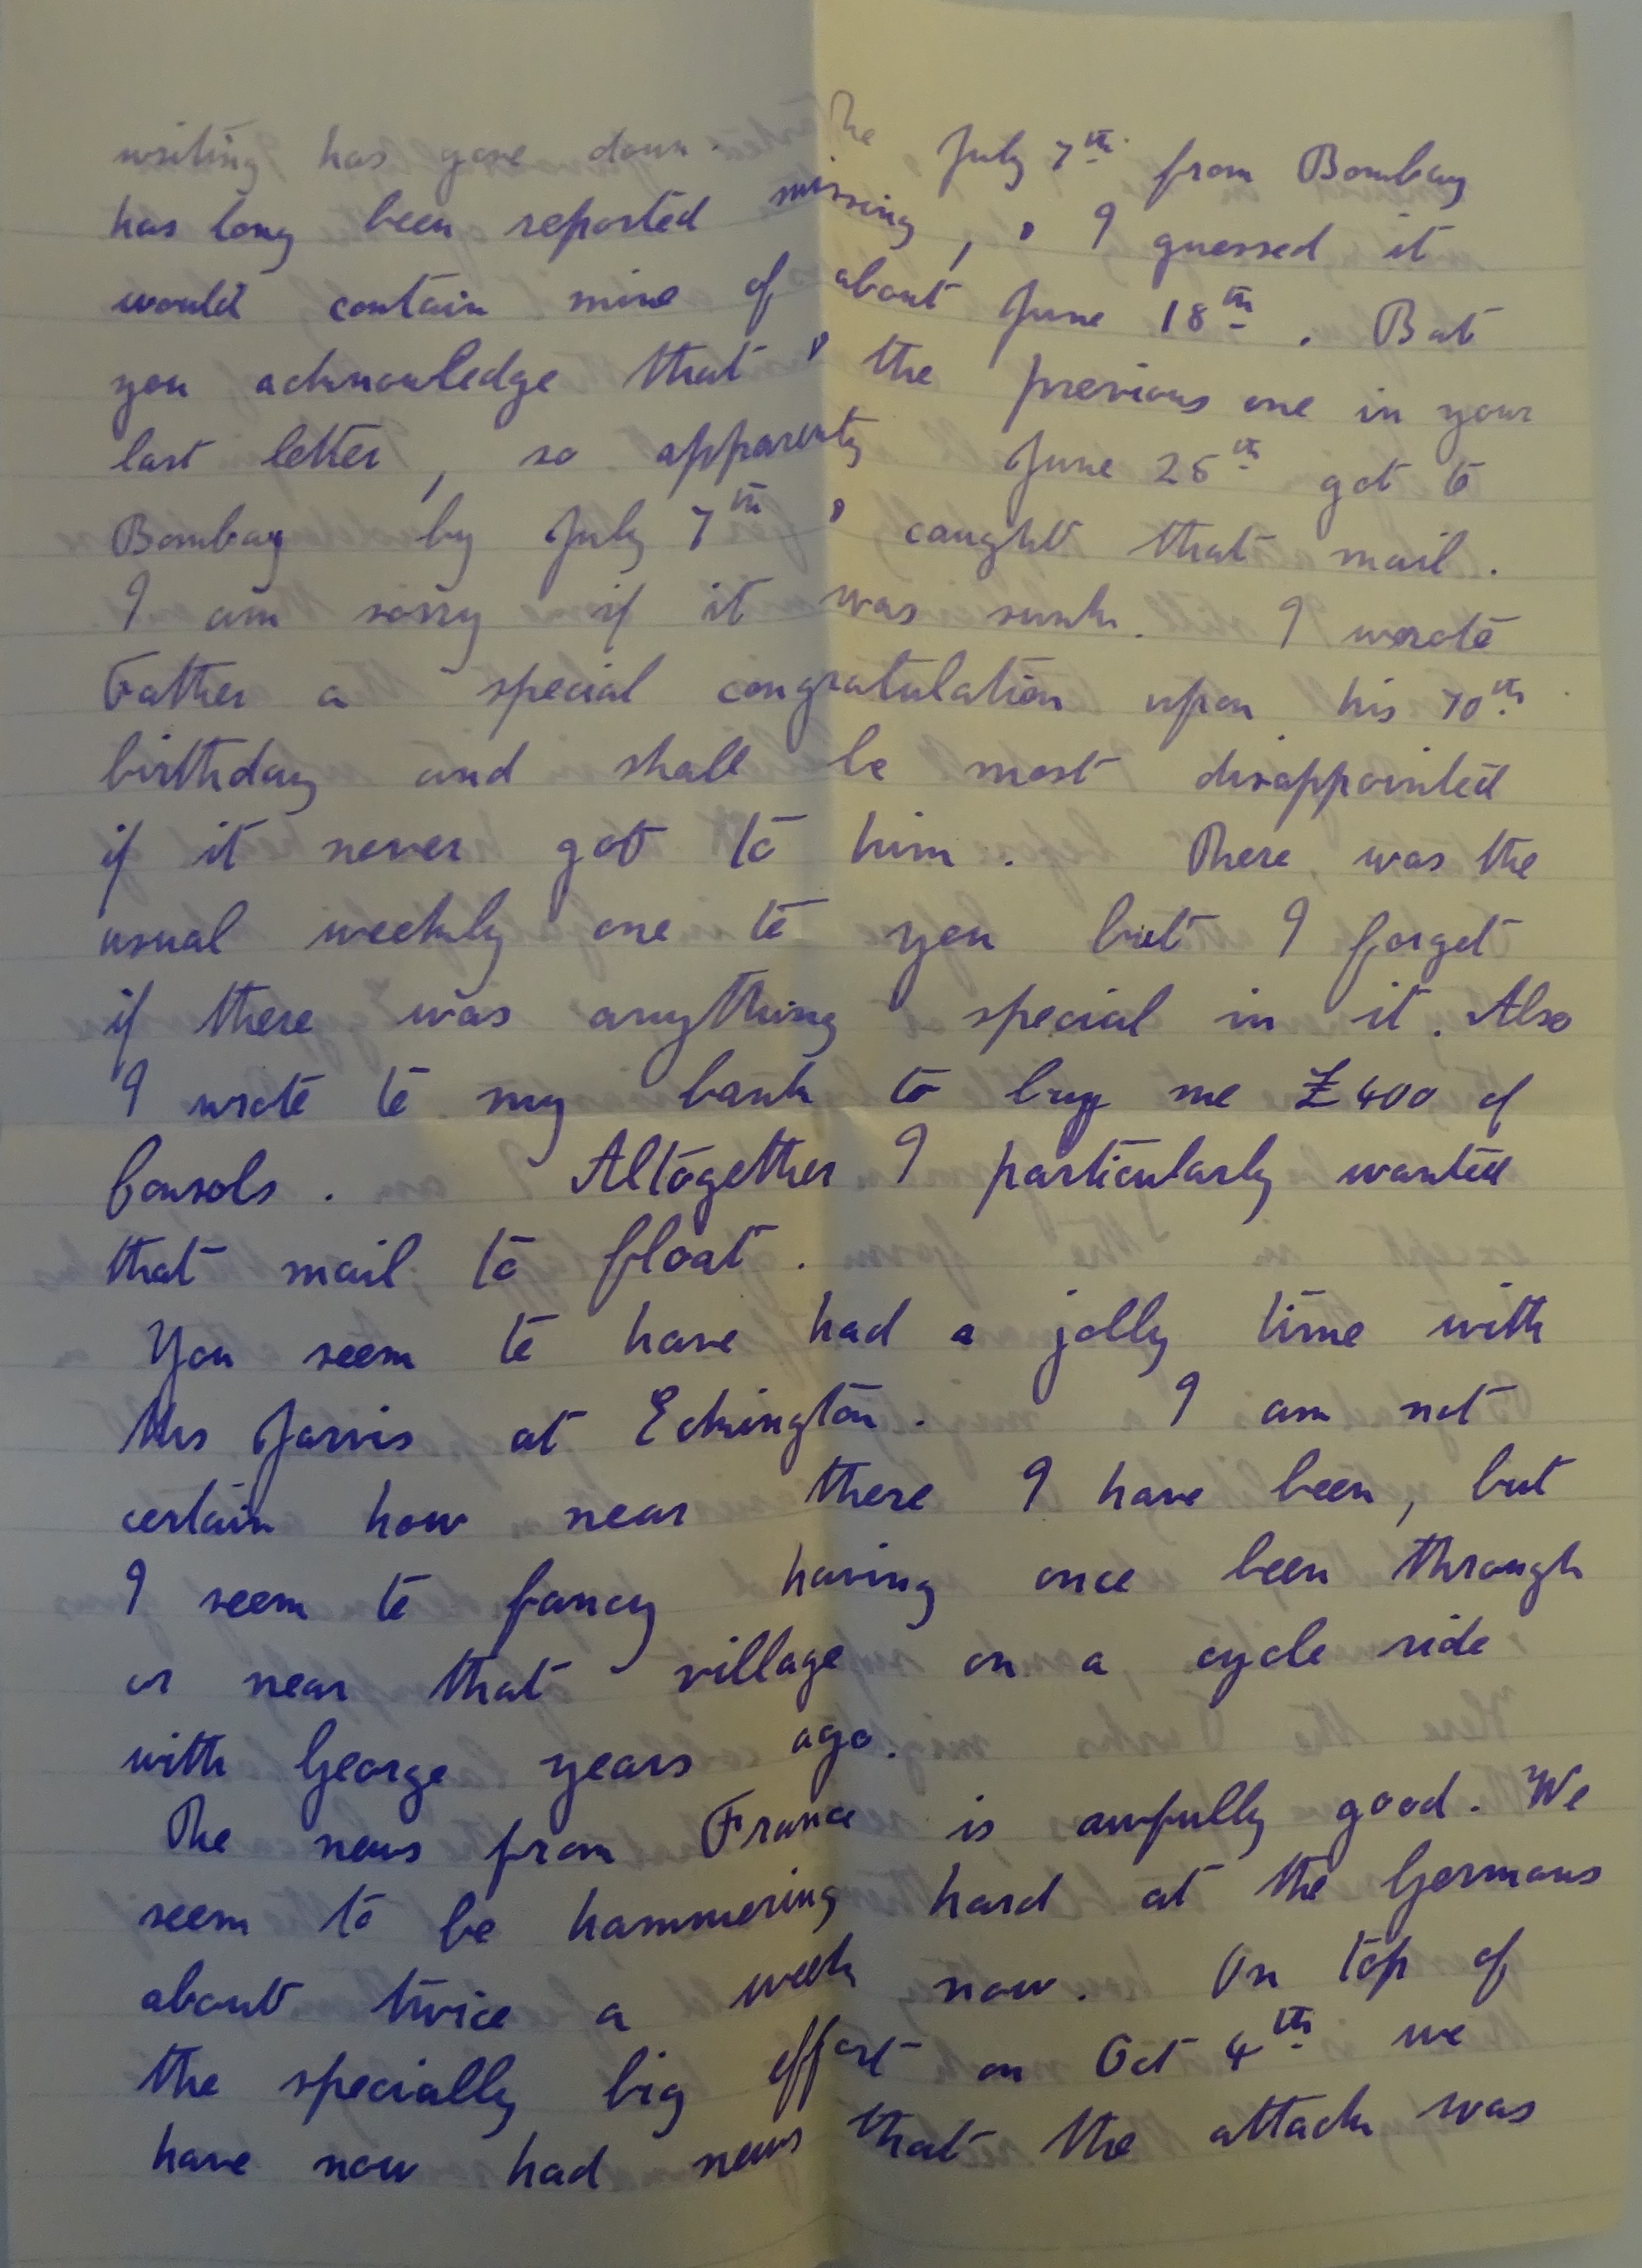 writing has gone down. The July 7th from Bombay
has long been reported missing, & I guessed it
would contain mine of about June 18th. But
you acknowledge that & the previous one in your
last letter, so apparently June 25th got to
Bombay by July 7th & caught that mail.
I am sorry if it was sunk. I wrote
Father a special congratulation upon his 70th
birthday and shall be most disappointed
if it never got to him. There was the
usual weekly one to you but I forget
if there was anything special in it. Also
I wrote to my bank to buy me £400 of
Consols. Altogether I particularly wanted
that mail to float.
You seem to have had a jolly time with
Mrs Jarvis at Eckington. I am not
certain how near there I have been, but
I seem to fancy having once been through
or near that village on a cycle ride
with George years ago.
The news from France is awfully good. We
seem to be hammering hard at the Germans
about twice a week now. On top of
the specially big effort on Oct 4th we
have now had news that the attack was